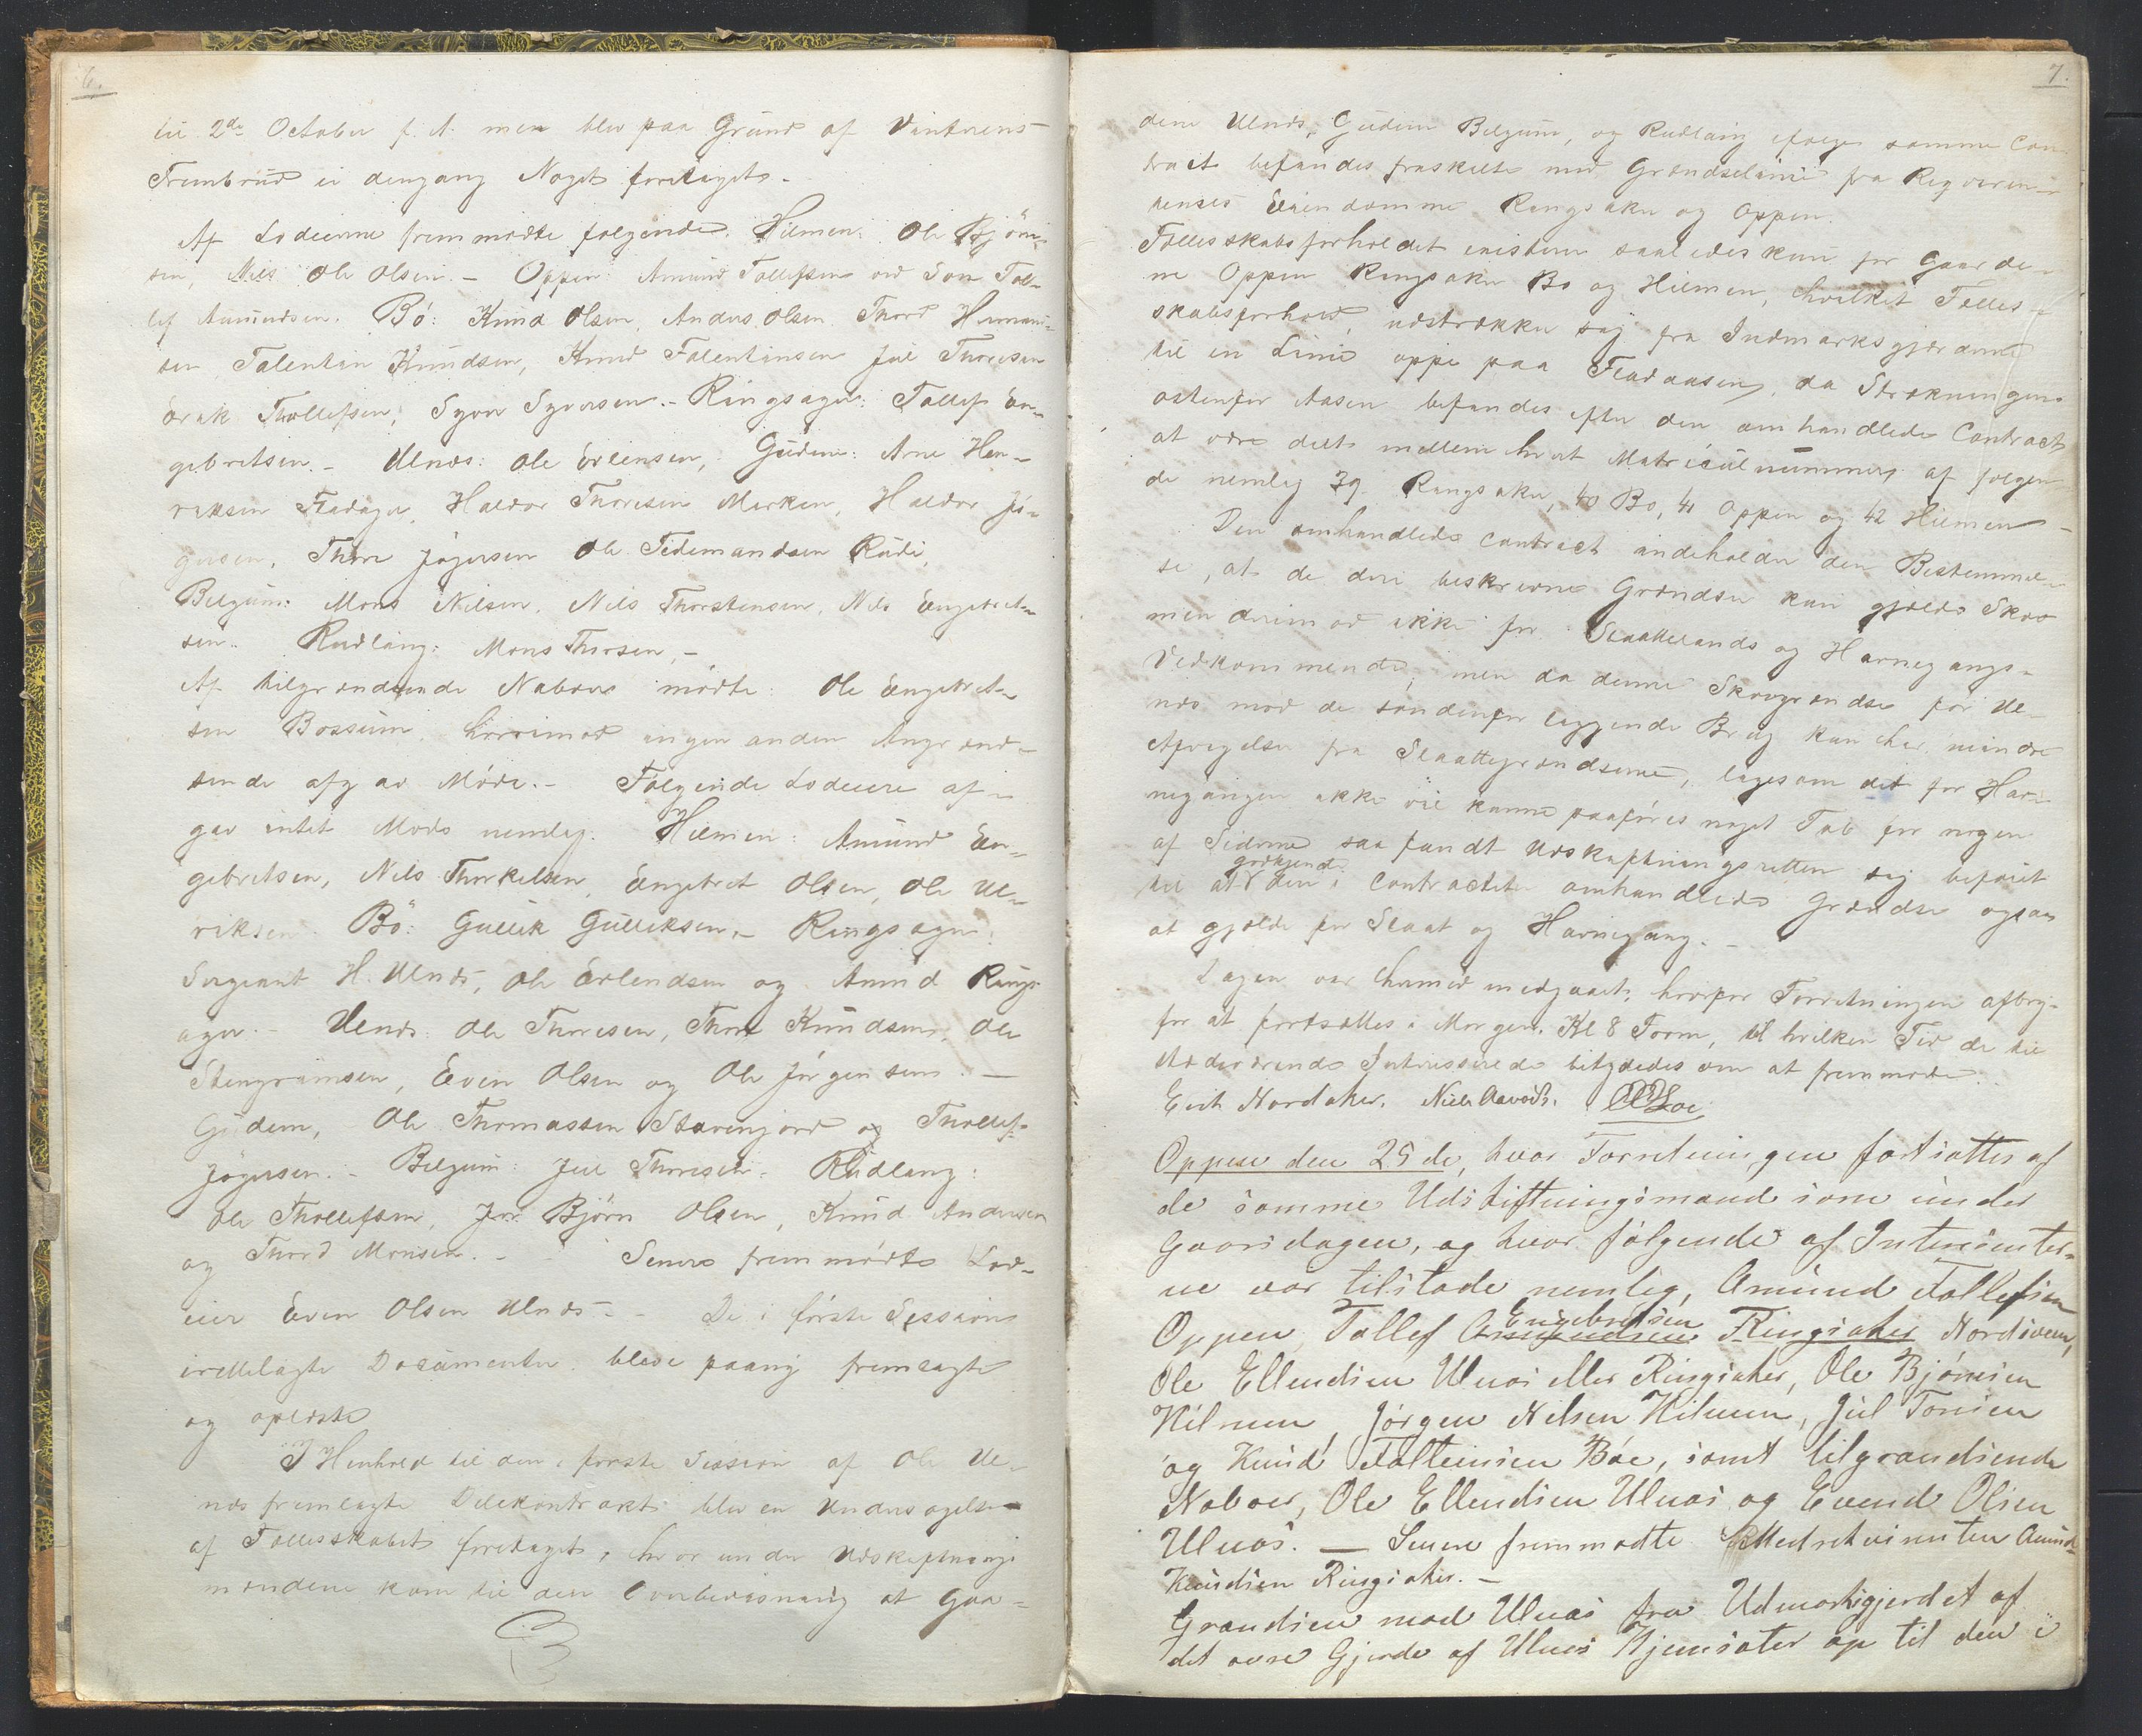 6.
til 2de October f. A. men blev paa Grund af Vinterens
Frembrud ei dengang Noget foretaget.
Af Lodeierne fremmødte følgende. Hilmen: Ole Bjørn-
sen, Nils Ole Olsen. - Oppen Amund Tollefsen ved Søn Tol-
lef Amundsen. Bö: Knud Olsen, Anders Olsen Thord Herman-
sen Falentin Knudsen, Knud Falentinsen Jul Thoresen
Erik Thollefsen, Syver Syversen. - Ringsager: Tollef En-
gebretsen. - Ulnæs: Ole Erlensen, Gudem: Arne Hen-
riksen Fladager, Haldor Thoresen Marken, Haldor Jö-
gersen, Thore Jögersen Ole Tidemandsen Rudi,
Belgum: Mons Nilsen, Nils Thorstensen, Nils Engebret-
sen. Rudlang: Mons Thorsen. -
Af tilgrændsende Naboer mödte: Ole Engebret-
sen Bossum, hvorimod ingen anden Angrænd-
sende afgav Möde. - Fölgende Lodeiere af-
gav intet Møde nemlig. Hilmen: Amund En-
gebretsen, Nils Thorkelsen, Engebret Olsen, Ole Ul-
riksen. Bö: Gullik Gulliksen. - Ringsager:
Sergeant H. Ulnæs, Ole Erlendsen og Amund Rings-
ager. - Ulnæs: Ole Thoresen, Thore Knudsen, Ole
Stengrimsen, Even Olsen og Ole Jörgensen. -
Gudem, Ole Thomassen Starenjord og Thollef
Jögersen. - Belgum: Jul Thoresen. Rudlang:
Ole Thollefsen, Jnr. Björn Olsen, Knud Andersen
og Thord Monsen. - Senere fremmödte Lod-
eier Even Olsen Ulnæs. - De i förste Session
irettelagte Documenter bleve paany fremlagte
og oplæste
I Henhold til den i første Session af Ole Ul-
næs fremlagte Delekontrakt blev en Undersøgelse
af Fællesskabet foretaget, hvorunder Udskiftnings
mændene kom til den Overbevisning at Gaa-
7.
dene Ulnæs, Gudem Belgum, og Rudlang ifølge samme Con-
tract befandes fraskilte med Grændselinie fra Reqviren-
tenses Eiendomme Ringsaker og Oppen.
Fællesskabsforholdet existerer saaledes kun for Gaarde-
ne Oppen Ringsaker Bø og Hilmen, hvilket Fælles-
skabsforhold, udstrækker sig fra Indmarksgjærderne
til en Linie oppe paa Fladaasen, da Strækningen
østenfor Aasen befandes efter den omhandlede Contract
at være delt mellem hvert Matriculnummer af følgen-
de nemlig 39 Ringsaker, 40 Bø, 41 Oppen og 42 Hilmen -
Den omhandlede Contract indeholder den Bestemmel-
se, at de deri beskrevne Grændser kun gjælde Skov
men derimod ikke for Slaattelands og Havnegangs-
Vedkommende, men da denne Skovgrændse for Ul-
næs mod de søndenfor liggende Brug kun har mindre
Afvigelser fra Slaattegrændserne, ligesom det for Hav-
negangen ikke vil kunne paaføres noget Tab for nogen
af Siderne saa fandt Udskiftningsretten sig beføiet
til at godkjende den i Contractet omhandlede Grændse ogsaa
at gjælde for Slaat og Havnegang. -
Dagen var hermed medgaaet, hvorfor Forretningen afbry-
for at fortsættes i Morgen Kl 8 Form, til hvilken Tid de til
stedeværende Intresserede tilsagdes om at fremmøde.
Erik Nordaker. Niels Aavads.
Oppen den 25de, hvor Forretningen fortsattes af
de samme Udskiftningsmænd som under
Gaarsdagen, og hvor følgende af Interesenter-
ne var tilstede nemlig, Amund Tollefsen
Oppen, Tollef Amundsen Engebretsen Ringsaker Nordsveen,
Ole Ellendsen Ulnæs eller Ringsaker, Ole Bjørnsen
Hilmen, Jørgen Nelsen Hilmen, Jul Torsen
og Knud Falteinsen Bøe, samt tilgrændsende
Naboer, Ole Ellendsen Ulnæs og Evend Olsen
Ulnæs. - Senere fremmødte Medrekvirenten Amund
Knudsen Ringsaker. -
Grændsen mod Ulnæs fra Udmarksgjerdet af
det øvre Gjerde af Ulnæs Hjemsæter op til den i